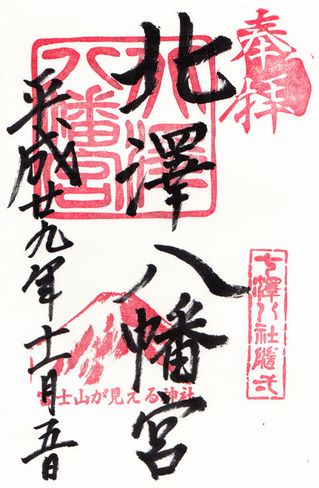 奉拝
七澤八社随弌
北澤八幡宮
北澤
八幡宮
富士山が見える神社
平成廿九年十一月五日